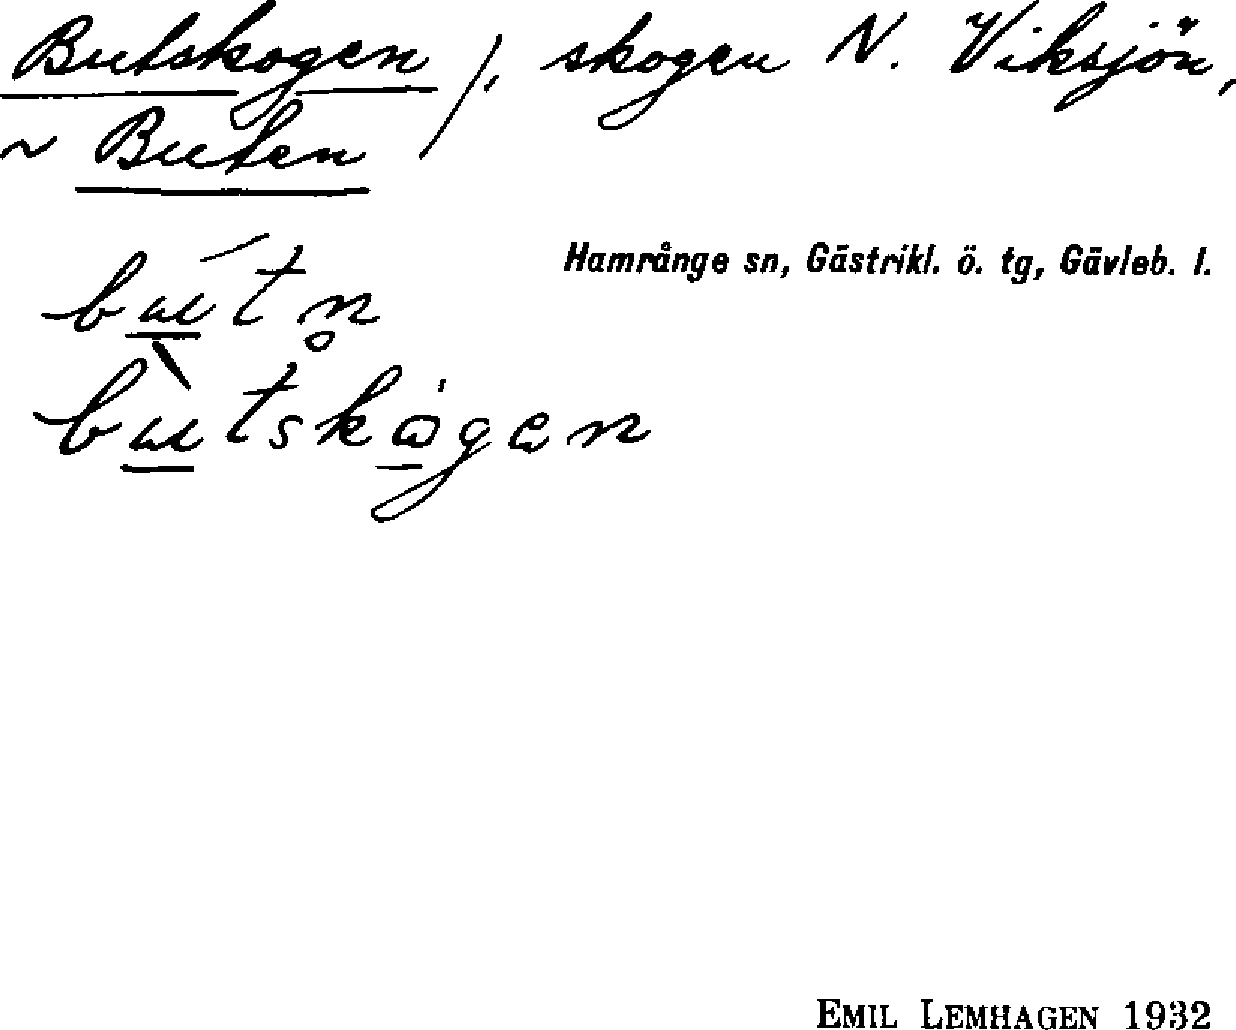 Butskogen /, skogen N. Viksjön,
~ Buten
Hamrånge sn, Gästrikl. ö. tg, Gävleb. l.
bu̲tn̥
bu̲tsko̲gen
EMIL LEMHAGEN 1932